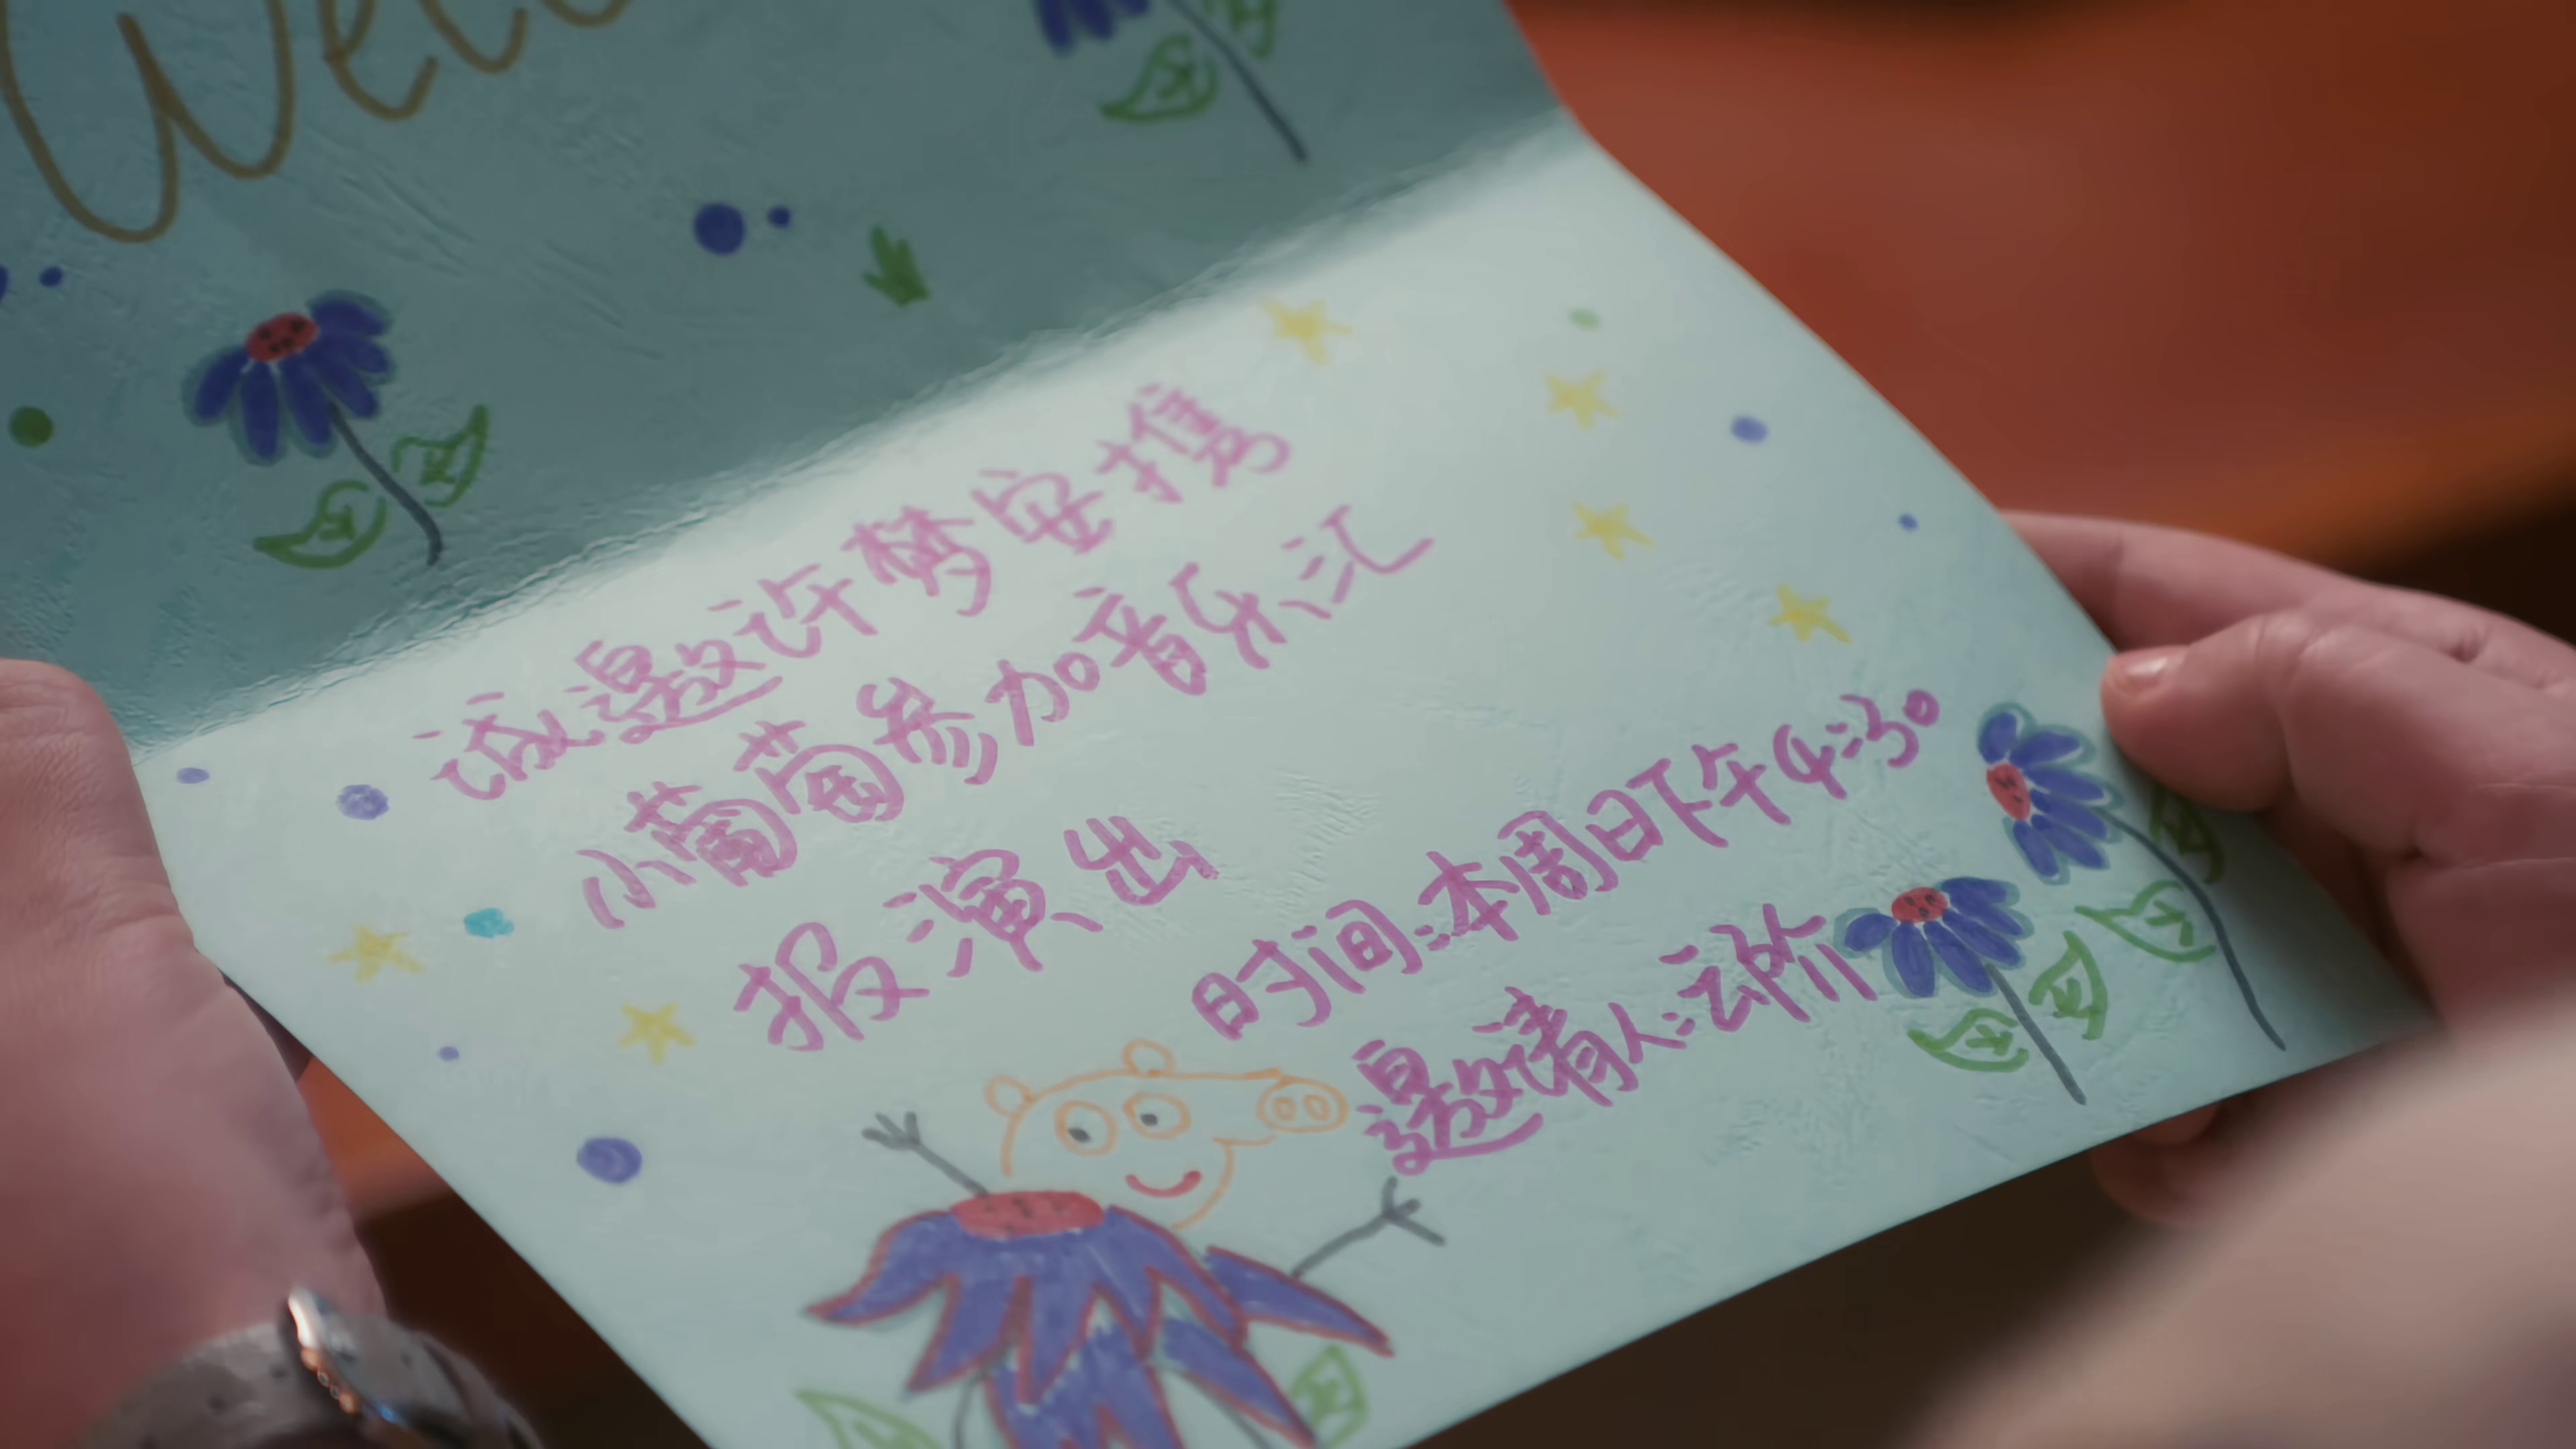 Wel
诚邀许梦安携
小葡萄参加音乐汇
报演出
时间:本周日下午4:30
邀请人:云阶